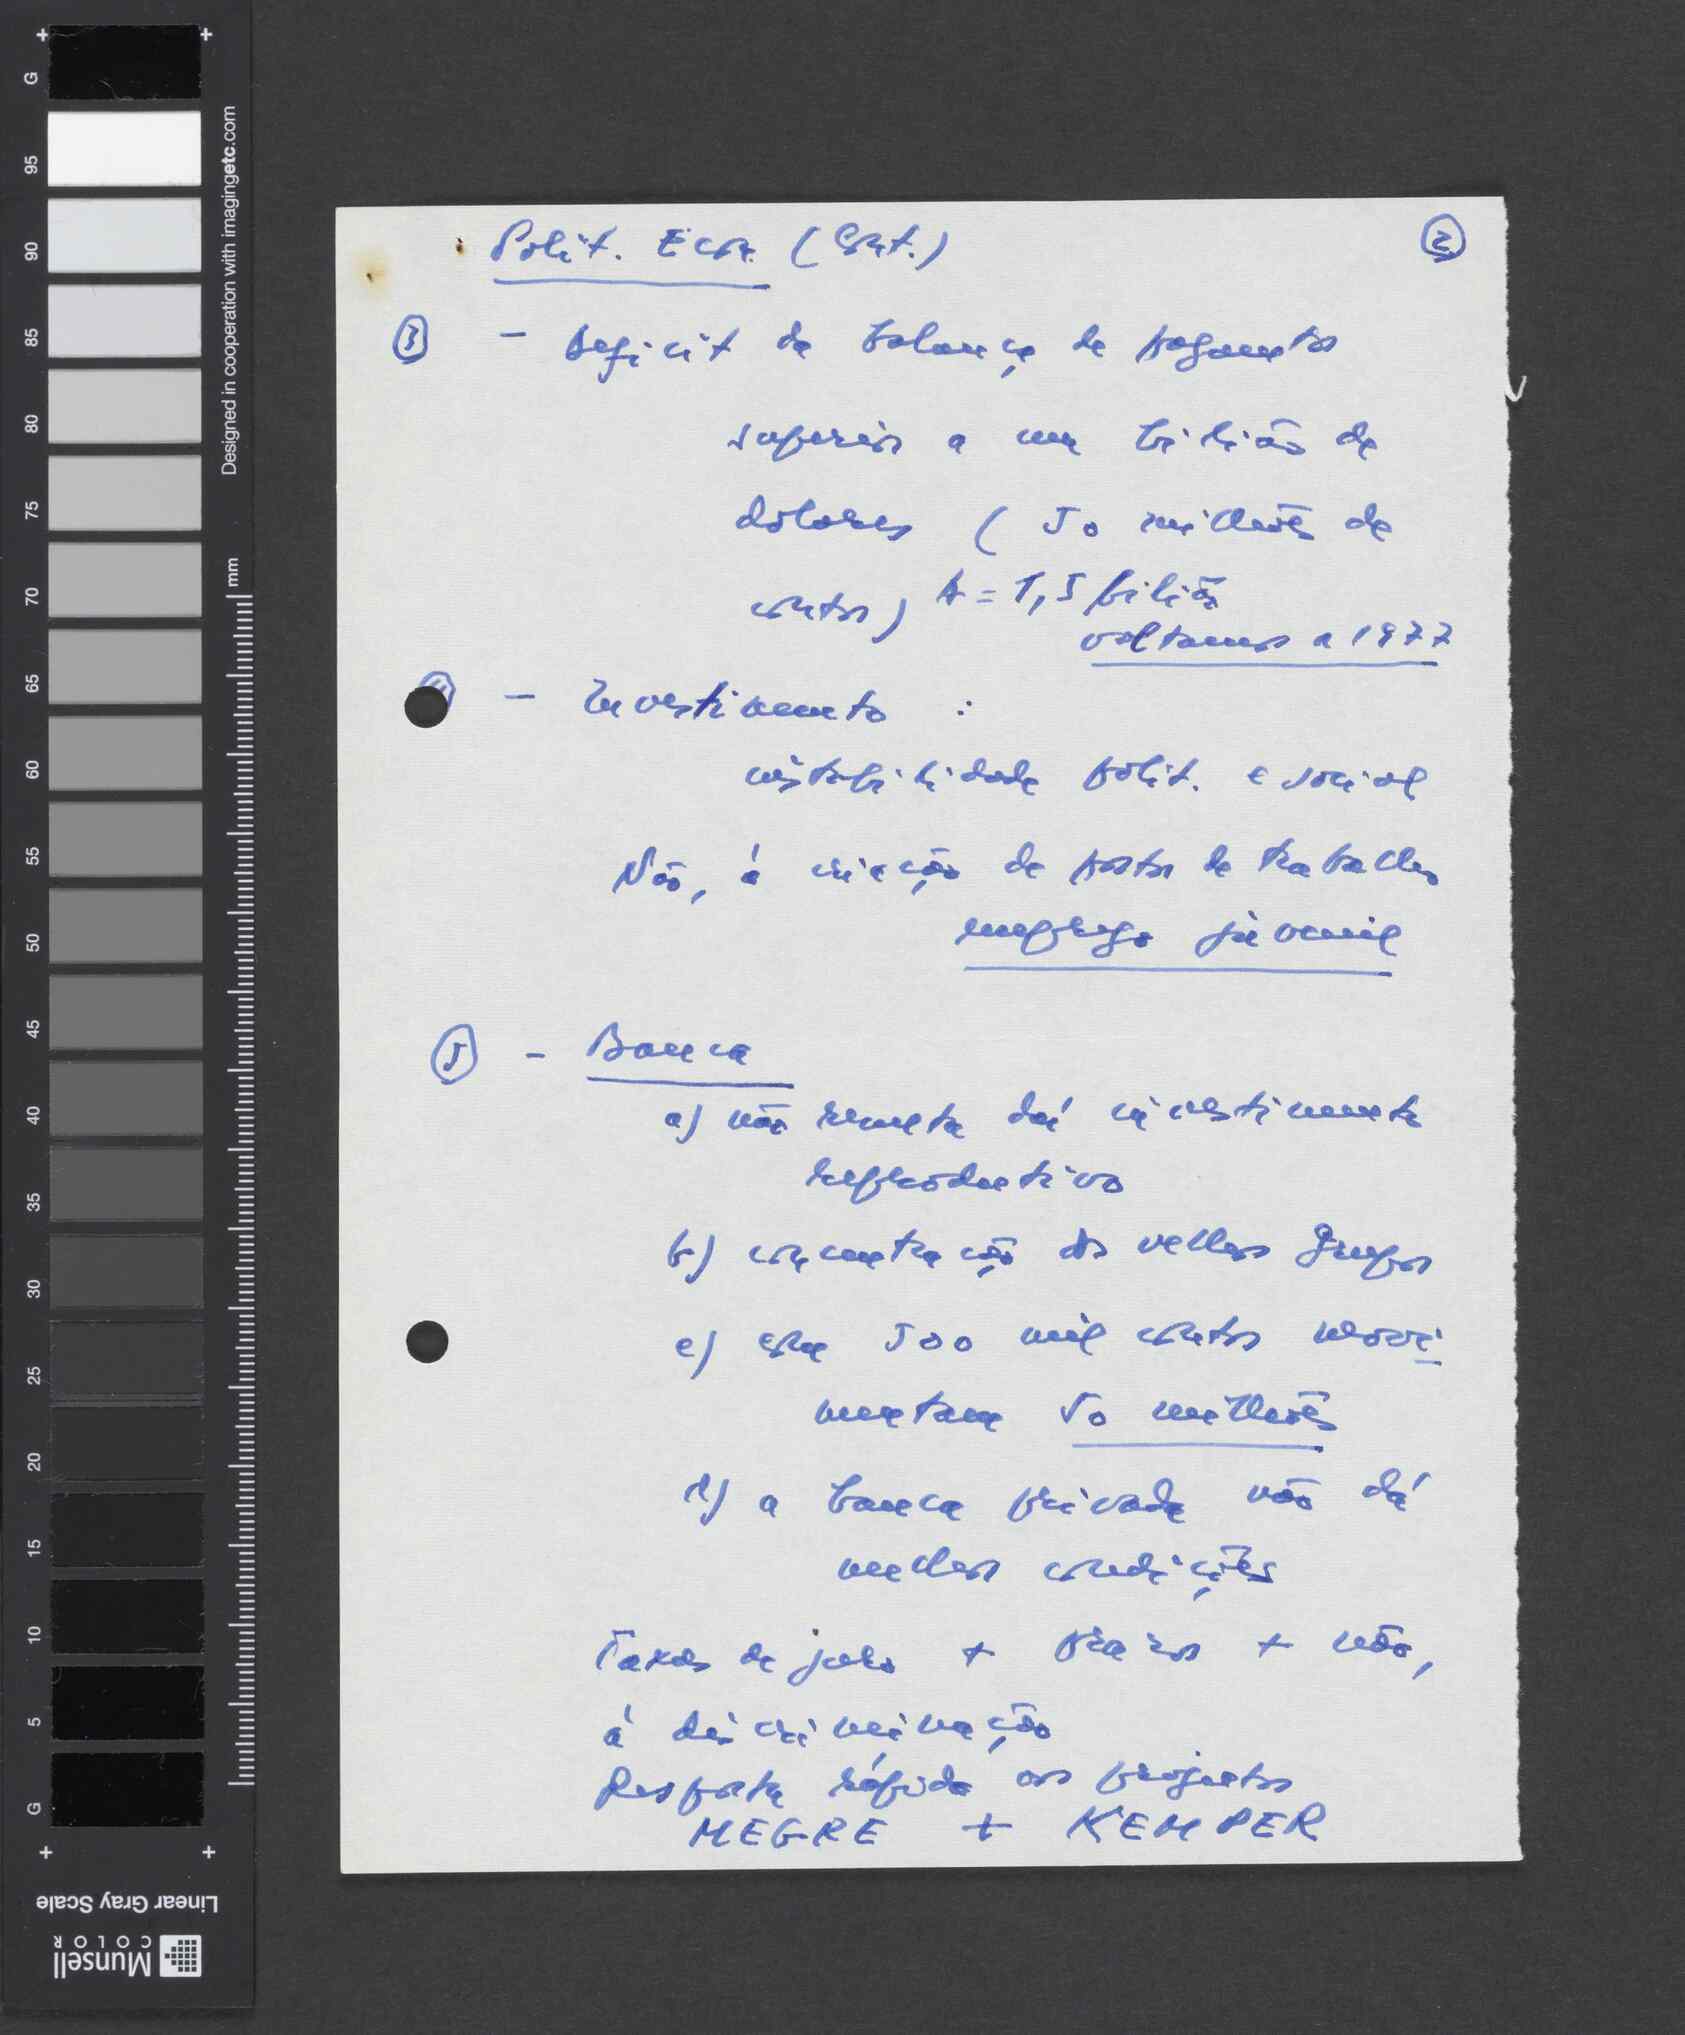 Polit. Econ. (Cont.) 2
3 - Deficit da balança de pagamentos
superior a um bilião de
dólares ( 50 milhões de
contos) A = 1,5 bilião
voltamos a 1977
- Investimento :
instabilidade polit. e social
Não, à criação de postos de trabalho
emprego juvenil
5 - Banca
a) não aumenta daí investimento
reproductivo
b) concentração dos velhos Grupos
c) com 500 mil contos movi-
mentam 50 milhões
d) a banca privada não dá
melhores condições
Taxas de juro + prazos + não,
à discriminação
Resposta rápida aos projectos
MEGRE + KEMPER
G
95
90
85
80
75
70
65
60
55
50
45
40
35
30
25
20
15
10
5
G
Designed in cooperation with imagingetc.com
mm
Linear Gray Scale
Munsell
COLOR